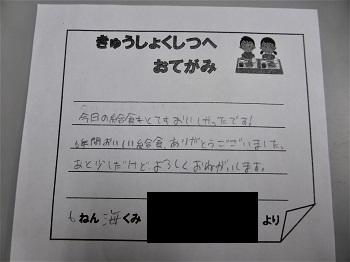 きゅうしょくしつへ
おてがみ
今日の給食もとてもおいしかったです!
6年間おいしい給食、ありがとうございました。
あと少しだけど、よろしくおねがいします。
6ねん海くみ
より